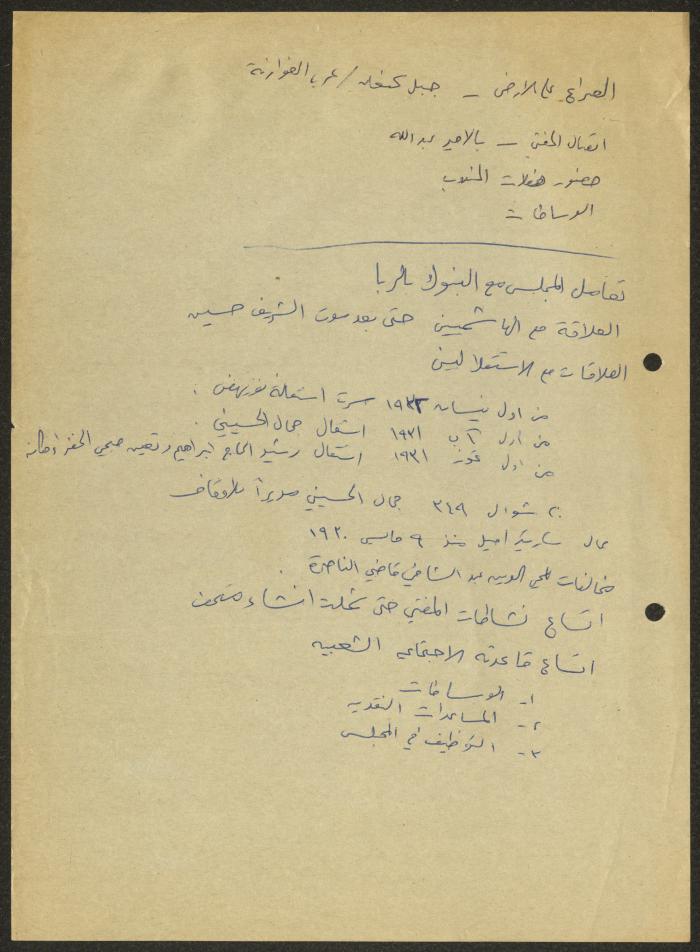 الصراع على الارض – جبل كنعان / عرب الفوازنة
اتصال المفتي – بالامير عبدالله
حضور حفلات المندوب
الوساطات
تعامل المجلس مع البنوك بالربا
العلاقة مع الهاشميين حتى بعد موت الشريف حسين
العلاقات مع الاستقلاليين
من اول نيسان ١٩٣٢ سرت استقالة
من اول آب ١٩٣١ استقال جمال الحسيني .
من اول تموز ١٩٣١ استقال رشيد الحاج ابراهيم وتعين صبحي الخضرا مكانه
٢٠ شوال ٣٤٩ جمال الحسيني مديراً للاوقاف
جمال سكرتير منذ ٩ مارس ١٩٣٠
مخالفات محي الدين عبد الشافي قاضي الناصرة .
اتساع نشاطات المفتي حتى شملت انشاء متحف
اتساع قاعدته الاجتماعيه الشعبيه
١- الوساطات
٢- المساعدات النقديه
٣- التوظيف في المجلس